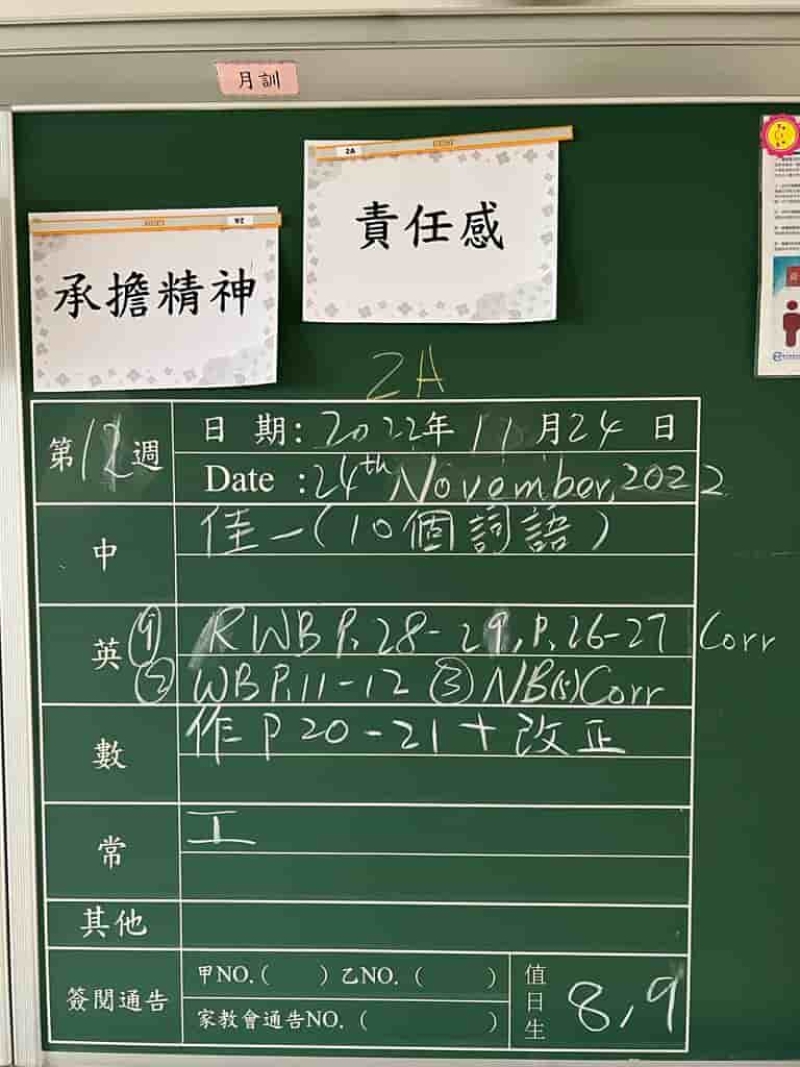 月訓
2A
責任感
承擔精神
2A
第12週
日期：2022年11月24日
Date：24th November, 2022
中
佳一（10個詞語）
英
① RWB P.28-29, P.26-27 Corr
② WB P.11-12 ③ NB(5) Corr
數
作 P 20-21 + 改正
常
工
其他
簽閱通告
甲NO.（ ）乙NO.（ ）
家教會通告NO.（ ）
值日生
8,9